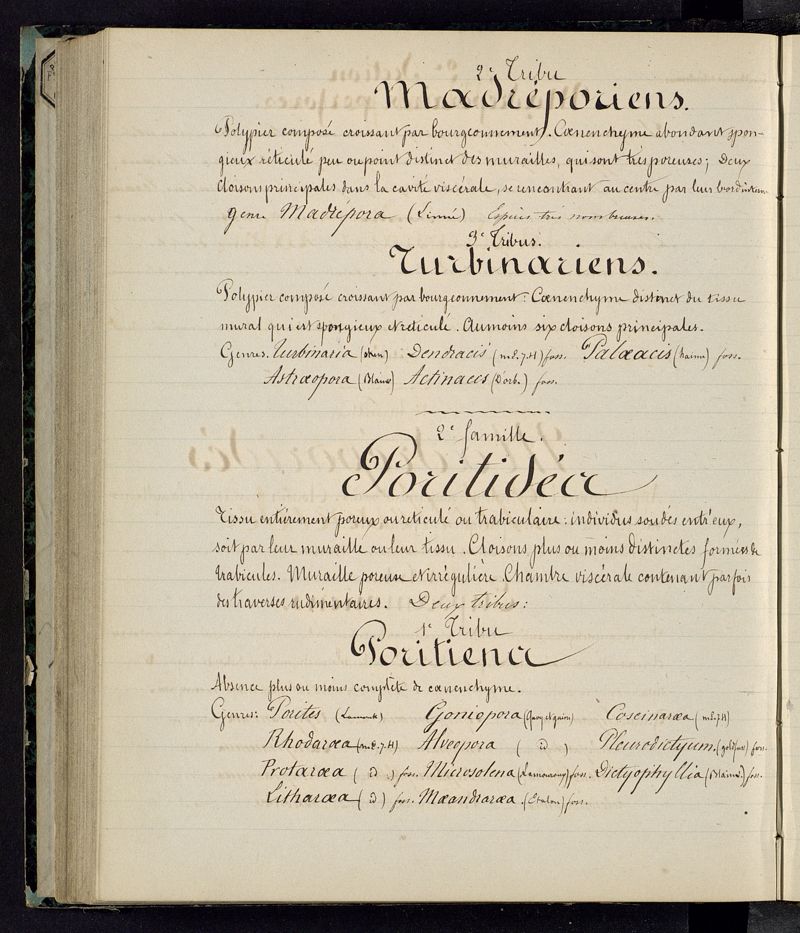 2e Tribu
Madréporiens.
Polypier composé croissant par bourgeonnement. Cœnenchyme abondant spon-
gieux réticulé peu ou point distinct des murailles, qui sont très poreuses; Deux
cloisons principales dans la cavité viscérale, se rencontrant au centre par leur bord
Genre Madrépora (Linné) Espèces très nombreuses.
3e Tribus.
Turbinariens.
Polypier composé croissant par bourgeonnement. Cœnenchyme distinct du tissu
mural qui est spongieux et réticulé. Au moins six cloisons principales.
Genres. Turbinaria (oken) Dendracis (m.E.-J.H) foss. Palæacis (haime) foss.
Astræopora (Blainv) Actinacis (Dorb.) foss.
2e famille.
Poritidéa
Tissu entièrement poreux ou reticulé ou trabiculaire: individus soudés entr'eux,
soit par leur muraille ou leur tissu. Cloisons plus ou moins distinctes formées de
trabicules. Muraille poreuse et irrégulière. Chambre viscérale contenant parfois
des traverses rudimentaires. Deux tribus:
1e Tribu
Poritiena
Absence plus ou moins complète de cœnenchyme.
Genres: Porites (Lamarck) Goniopora (Quoy et gaim) Coscinaræa (m.E.J.H)
Rhodaræa (m.E.J.H) Alveopora (id) Pleurodictyum (goldfuss) foss.
Protaræa (id.) foss. Microsolena (Lamouroux) foss. Dictyophyllia (Blainv.) foss.
Litharæa (id) foss. Mæandraræa (Etallon) foss.